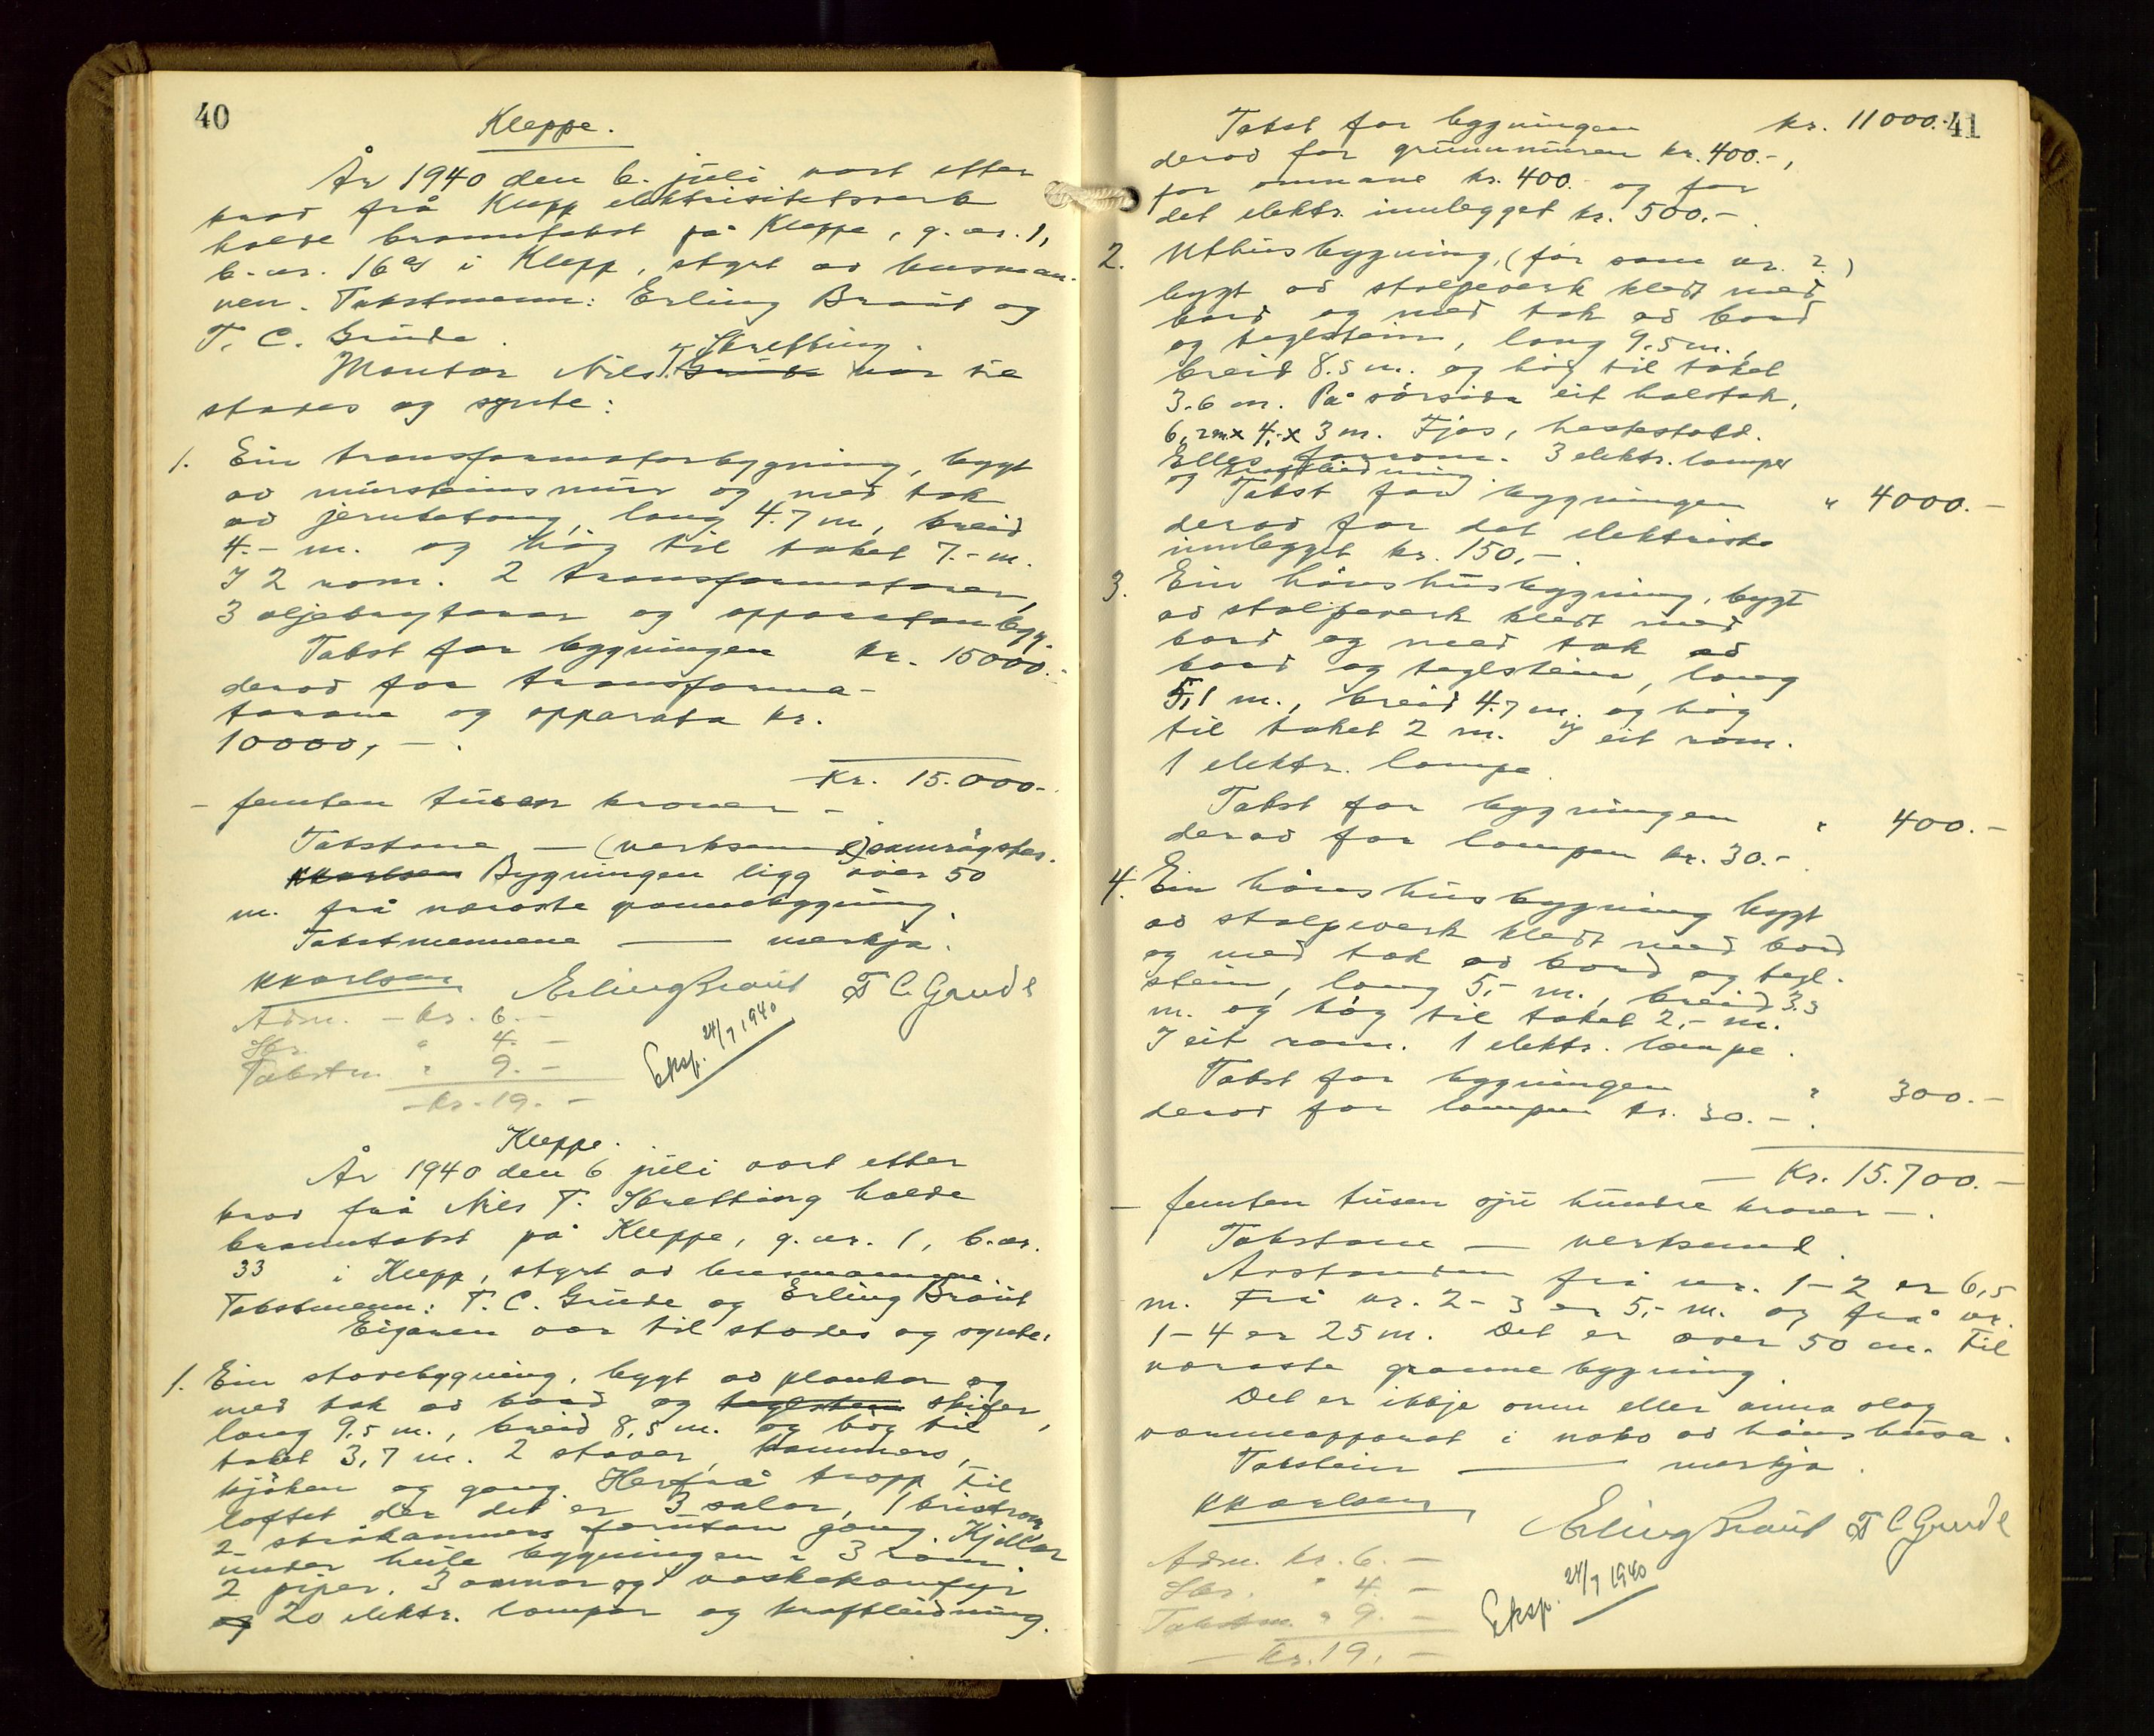 40
Kleppe.
År 1940 den 6. juli vart etter
krav frå Klepp elektrisitetsverk
halde branntakst på Kleppe, g.nr. 1,
b.nr. 16 i Klepp, styrt av lensman-
nen. Takstmenn: Erling Braut og
T. C. Grude.
Montør Nils T. Grude Skretting var tie
stades og synte:
1. Ein transformatorbygning, bygt
av mursteinsmur og med tak
av jernbetong, lang 4.7 m, breid
4.- m. og høg til taket 7.- m.
I 2 rom. 2 transformatorer,
3 oljebrytarar og apparatan
Takst for bygningen kr. 15000.-
derav for transforma-
torane og apparata kr.
10000,-.
Kr. 15.000.-
- femten tusen kroner -
Takstane — (verksem samrøystes.
KKarlsen Bygningen ligg over 50
m. frå næraste grannebygning.
Takstmennene — merkja.
KKarlsen Erling Braut T C Grude
Adm. - kr. 6.-
Skr. " 4.-
Takstm. " 9.-
kr. 19.-
Eksp. 24/7 1940
Kleppe.
År 1940 den 6 juli vart etter
krav frå Nils T. Skretting halde
branntakst på Kleppe, g.nr. 1, b.nr.
33 i Klepp, styrt av lensmannen.
Takstmenn: T. C. Grude og Erling Braut
Eigaren var til stades og synte:
1. Ein stovebygning, bygt av plankar og
med tak av bord og teglstein skifer,
lang 9,5 m., breid 8,5 m. og høg til
taket 3,7 m. 2 stover, kammers,
kjøken og gang. Herfrå tropp til
loftet der det er 3 salar, 1 kvistrom
2 skråkammers forutan gang. Kjellar
under heile bygningen i 3 rom.
2 piper. 3 omnar og vaskekomfyr
og 20 elektr. lampor og kraftleidning.
41
Takst for bygningen kr. 11000.-
derav for grunnmuren kr. 400.-,
for omnane kr. 400.- og for
det elektr. innlegget kr. 500.-.
2. Uthusbygning, (før som nr. 2.)
bygt av stolpeverk kledt med
bord og med tak av bord
og teglstein, lang 9.5 m.,
breid 8.5 m. og høg til taket
3.6 m. På sørsida eit halvtak,
6,2 m x 4,- x 3 m. Fjøs, hestestall.
Elles forrom. 3 elektr. lamper
og kraftleidning.
Takst for bygningen " 4000.-
derav for det elektriske
innlegget kr. 150,-.
3. Ein hønshusbygning, bygt
av stolpeverk kledt med
bord og med tak av
bord og teglstein, lang
5,1 m., breid 4.7 m. og høg
til taket 2 m. I eit rom.
1 elektr. lampe.
Takst for bygningen " 400.-
derav for lampen kr. 30.-.
4. Ein hønshusbygning bygt
av stolpeverk kledt med bord
og med tak av bord og tegl-
stein, lang 5,- m., breid 3.3
m. og høg til taket 2,- m.
I eit rom. 1 elektr. lampe.
Takst for bygningen " 300.-
derav for lampen kr. 30.-.
Kr. 15.700.-
- femten tusen sju hundre kroner -.
Takstane — verksemd.
Avstanden frå nr. 1-2 er 6,5
m. Frå nr. 2-3 er 5,- m. og frå nr.
1-4 er 25 m. Det er over 50 m. til
næraste grannebygning.
Det er ikkje omn eller anna slag
varmeapparat i noko av hønshusa.
Taksteinr — merkja.
KKarlsen
Erling Braut T C Grude
Adm. kr. 6.-
Skr. " 4.-
Takstm. " 9.-
kr. 19,-
Eksp. 24/7 1940